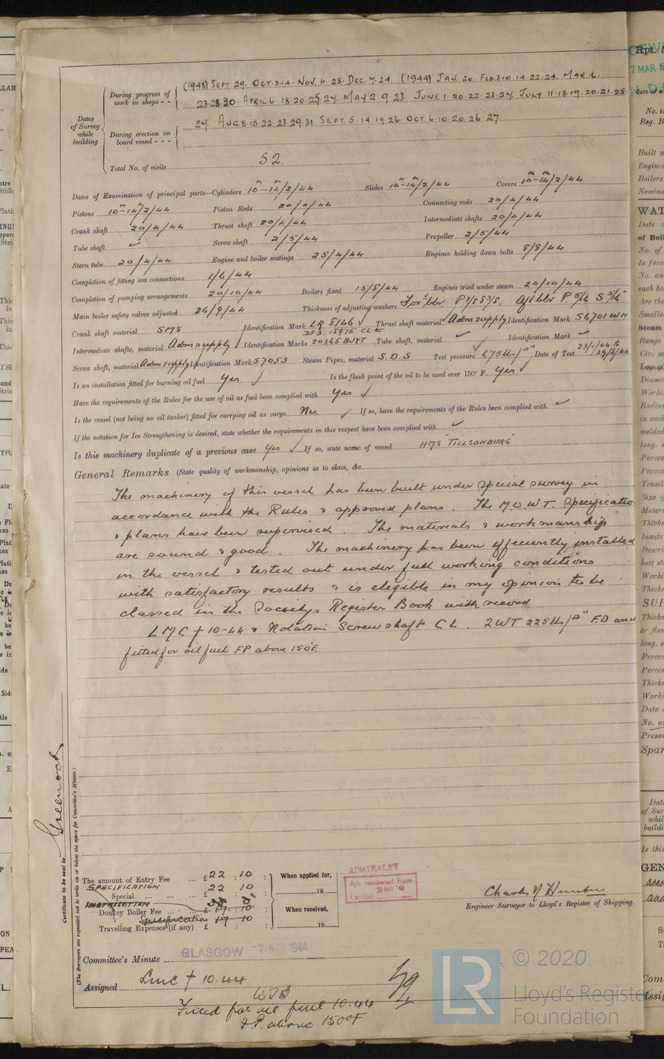 During progress of work in shops - - (1943) SEPT 29. OCT. 5.14. NOV. 4. 25. DEC. 7. 24. (1944) JAN. 20. FEB. 3.10.14.22.24. MAR. 16.
23.28.30 APRIL 6.18.20.25.24. MAY 2.9.23 JUNE 1.20.22.23.24. JULY 11.18.19.20.21.25
Dates of Survey while building
During erection on board vessel - - - 24. AUG. 8.15.22.23.29.31 SEPT. 5.14.19.26. OCT. 6.10.20.26.27.
Total No. of visits 52.
Dates of Examination of principal parts—Cylinders 10-14/2/44 Slides 10-14/2/44 Covers 10-14/2/44
Pistons 10-14/2/44 Piston Rods 20/4/44 Connecting rods 20/4/44
Crank shaft 20/4/44 Thrust shaft 20/4/44 Intermediate shafts 20/4/44
Tube shaft ✓ Screw shaft 2/5/44 Propeller 2/5/44
Stern tube 20/4/44 Engine and boiler seatings 25/4/44 Engines holding down bolts 8/8/44
Completion of fitting sea connections 1/6/44
Completion of pumping arrangements 20/10/44 Boilers fixed 15/8/44 Engines tried under steam 20/10/44
Main boiler safety valves adjusted 26/9/44 Thickness of adjusting washers
Crank shaft material SMS Identification Mark LR 8146 Thrust shaft material Adm supply Identification Mark 56701 WH
Intermediate shafts, material Adm supply Identification Marks Tube shaft, material ✓ Identification Mark ✓
Screw shaft, material Adm supply Identification Mark 57053 Steam Pipes, material S.D.S Test pressure 675 lbs/□" Date of Test
Is an installation fitted for burning oil fuel Yes ✓ Is the flash point of the oil to be used over 150° F. Yes ✓
Have the requirements of the Rules for the use of oil as fuel been complied with Yes ✓
Is the vessel (not being an oil tanker) fitted for carrying oil as cargo No. ✓ If so, have the requirements of the Rules been complied with ✓
If the notation for Ice Strengthening is desired, state whether the requirements in this respect have been complied with ✓
Is this machinery duplicate of a previous case Yes ✓ If so, state name of vessel HMS "TILLSONBURG"
General Remarks (State quality of workmanship, opinions as to class, &c.
The machinery of this vessel has been built under special survey in
accordance with the Rules & approved plans. The M.O.W.T. Specification
& plans have been supervised. The materials & workmanship
are sound & good. The machinery has been efficiently installed
in the vessel & tested out under full working conditions
with satisfactory results & is eligible in my opinion to be
classed in the Society's Register Book with record
LMC + 10-44 & Notation Screwshaft CL. 2WT 225 lb/□" FD and
fitted for oil fuel FP above 150°F.
Greenock
Certificate to be sent to
(The Surveyors are requested not to write on or below the space for Committee's Minute.)
The amount of Entry Fee ... £22 : 10 When applied for,
SPECIFICATION 22 10
Special ... 19
Donkey Boiler Fee ... £ When received,
Specification 10
Travelling Expenses (if any) £ 19
ADMIRALTY
A/c rendered from
London
Engineer Surveyor to Lloyd's Register of Shipping.
Committee's Minute GLASGOW 7 NOV 1944
Assigned LMC + 10.44
Fitted for oil fuel 10.44
F.P. above 150°F
© 2020
LR
Lloyd's Register
Foundation